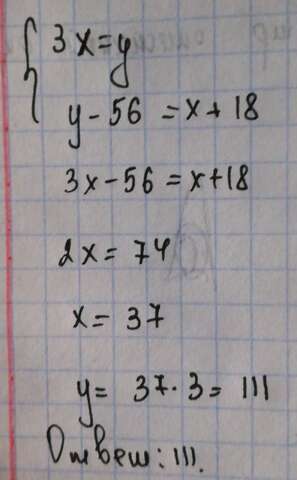 3x=y
y-56 = x+18
3x-56 = x+18
2x= 74
x= 37
y= 37·3= 111
Ответ: 111.